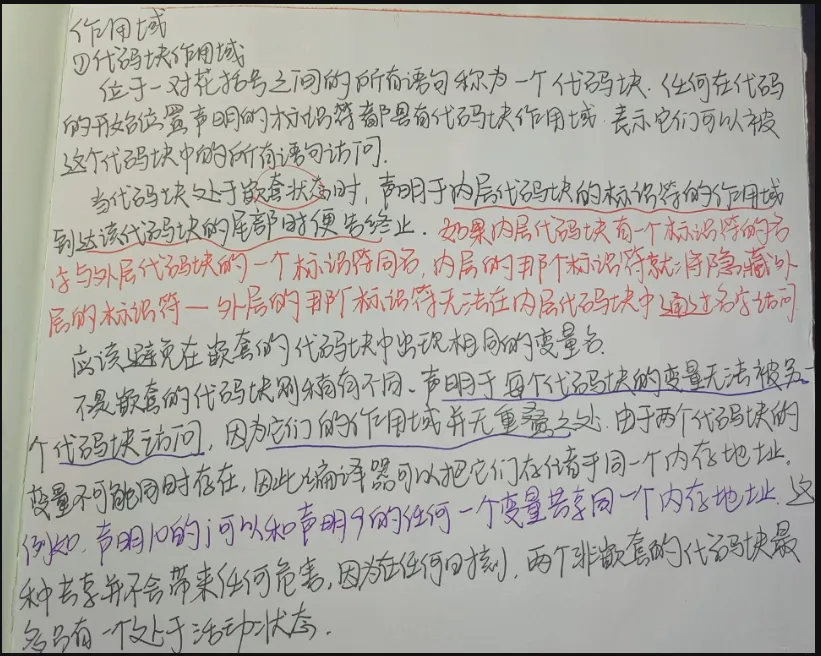 作用域
①代码块作用域
位于一对花括号之间的所有语句称为一个代码块. 任何在代码
的开始位置声明的标识符都具有代码块作用域. 表示它们可以被
这个代码块中的所有语句访问.
当代码块处于嵌套状态时, 声明于内层代码块的标识符的作用域
到达该代码块的尾部时便告终止. 如果内层代码块有一个标识符的名
字与外层代码块的一个标识符同名, 内层的那个标识符就将隐藏外
层的标识符—外层的那个标识符无法在内层代码块中通过名字访问
应该避免在嵌套的代码块中出现相同的变量名.
不是嵌套的代码块则稍有不同. 声明于每个代码块的变量无法被另一
个代码块访问, 因为它们的作用域并无重叠之处. 由于两个代码块的
变量不可能同时存在, 因此编译器可以把它们存储于同一个内存地址.
例如, 声明10的i可以和声明9的任何一个变量共享同一个内存地址. 这
种共享并不会带来任何危害, 因为在任何时刻, 两个非嵌套的代码块最
多只有一个处于活动状态.